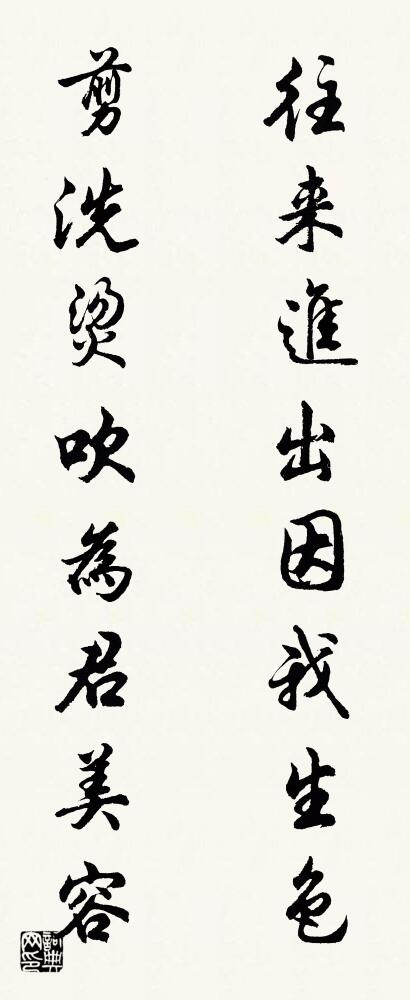 往来進出因我生色
剪洗燙吹為君美容
詞典網印